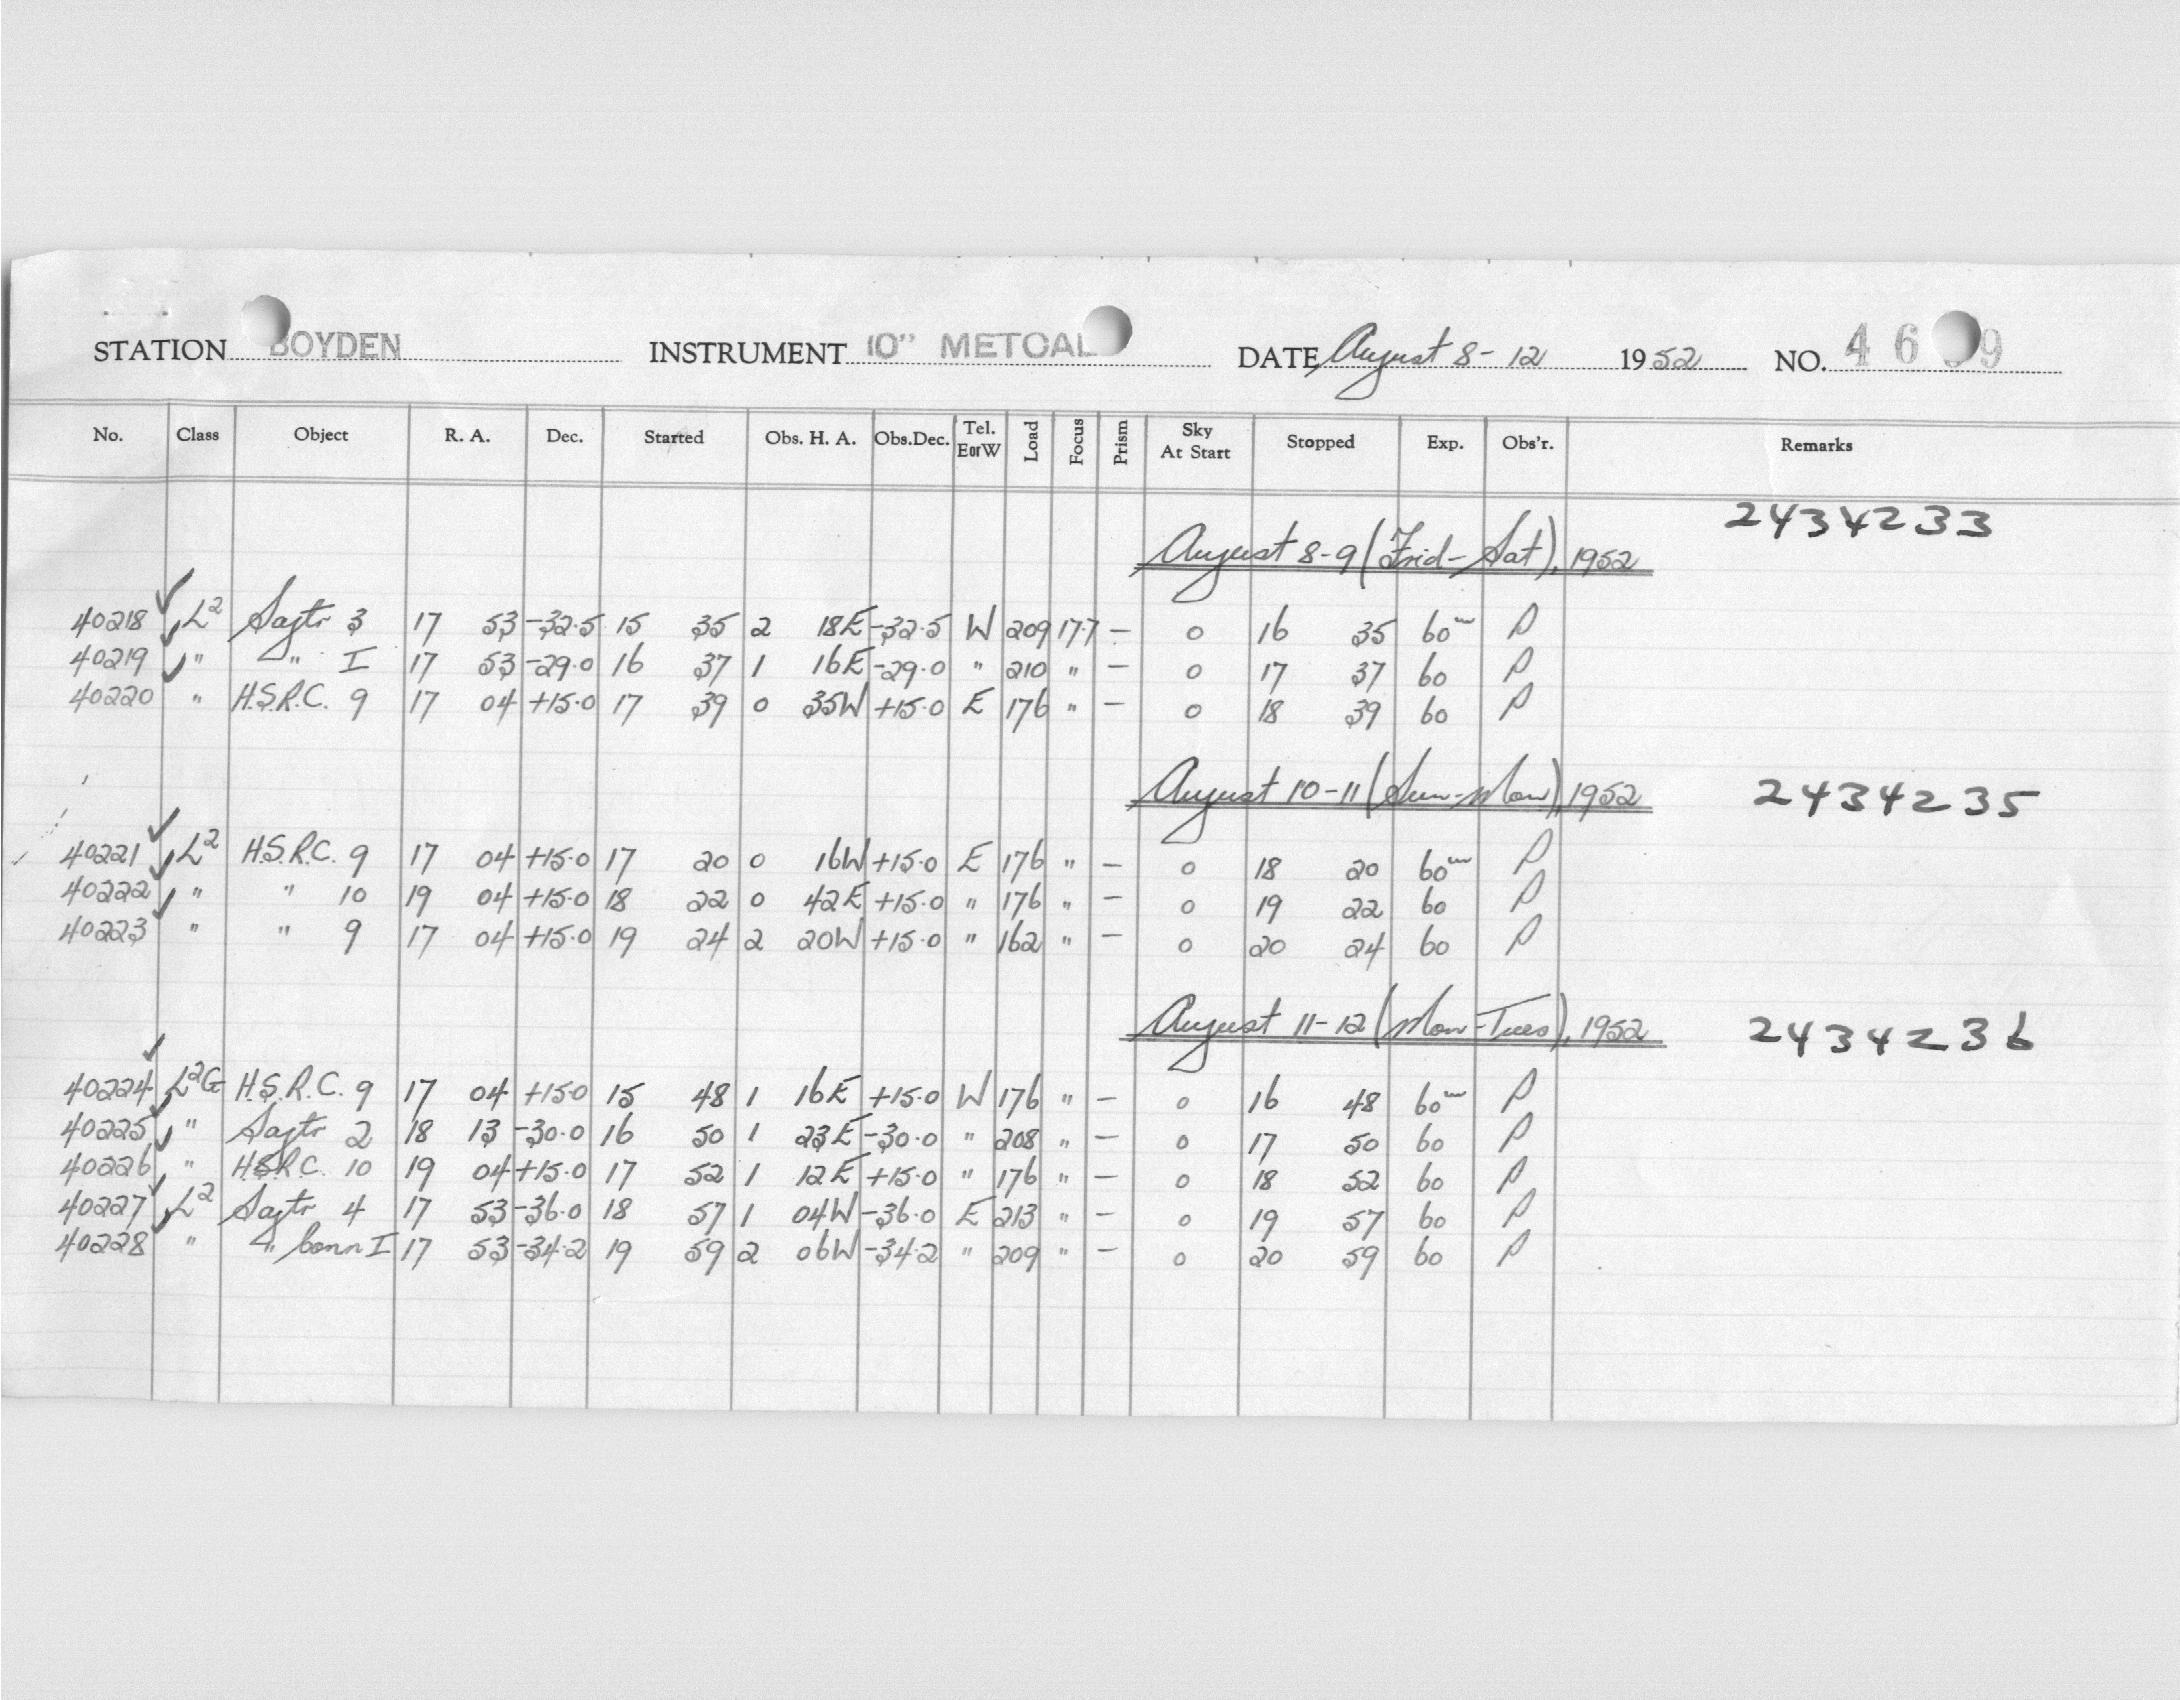 STATION BOYDEN INSTRUMENT 10" METCAL DATE August 8-12 1952 NO. 46 9
No. Class Object R. A. Dec. Started Obs. H. A. Obs.Dec. Tel. EorW Load Focus Prism Sky At Start Stopped Exp. Obs'r. Remarks
2434233
August 8-9 (Frid-Sat), 1952
40218 L² Sagtr 3 17 53 -32.5 15 35 2 18E -32.5 W 209 17.7 — 0 16 35 60ᵐ P
40219 " " I 17 53 -29.0 16 37 1 16E -29.0 " 210 " — 0 17 37 60 P
40220 " H.S.R.C. 9 17 04 +15.0 17 39 0 35W +15.0 E 176 " — 0 18 39 60 P
August 10-11 (Sun-Mon), 1952 2434235
40221 L² H.S.R.C. 9 17 04 +15.0 17 20 0 16W +15.0 E 176 " — 0 18 20 60ᵐ P
40222 " " 10 19 04 +15.0 18 22 0 42E +15.0 " 176 " — 0 19 22 60 P
40223 " " 9 17 04 +15.0 19 24 2 20W +15.0 " 162 " — 0 20 24 60 P
August 11-12 (Mon-Tues), 1952 2434236
40224 L²G H.S.R.C. 9 17 04 +15.0 15 48 1 16E +15.0 W 176 " — 0 16 48 60ᵐ P
40225 " Sagtr 2 18 13 -30.0 16 50 1 23E -30.0 " 208 " — 0 17 50 60 P
40226 " H.S.R.C. 10 19 04 +15.0 17 52 1 12E +15.0 " 176 " — 0 18 52 60 P
40227 L² Sagtr 4 17 53 -36.0 18 57 1 04W -36.0 E 213 " — 0 19 57 60 P
40228 " " Conn I 17 53 -34.2 19 59 2 06W -34.2 " 209 " — 0 20 59 60 P